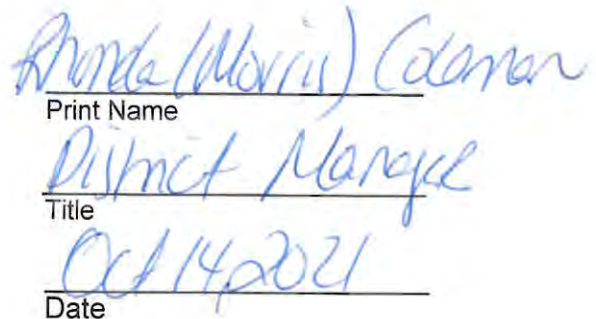 Rhonda (Morris) Coleman
Print Name
District Manager
Title
Oct 14, 2021
Date